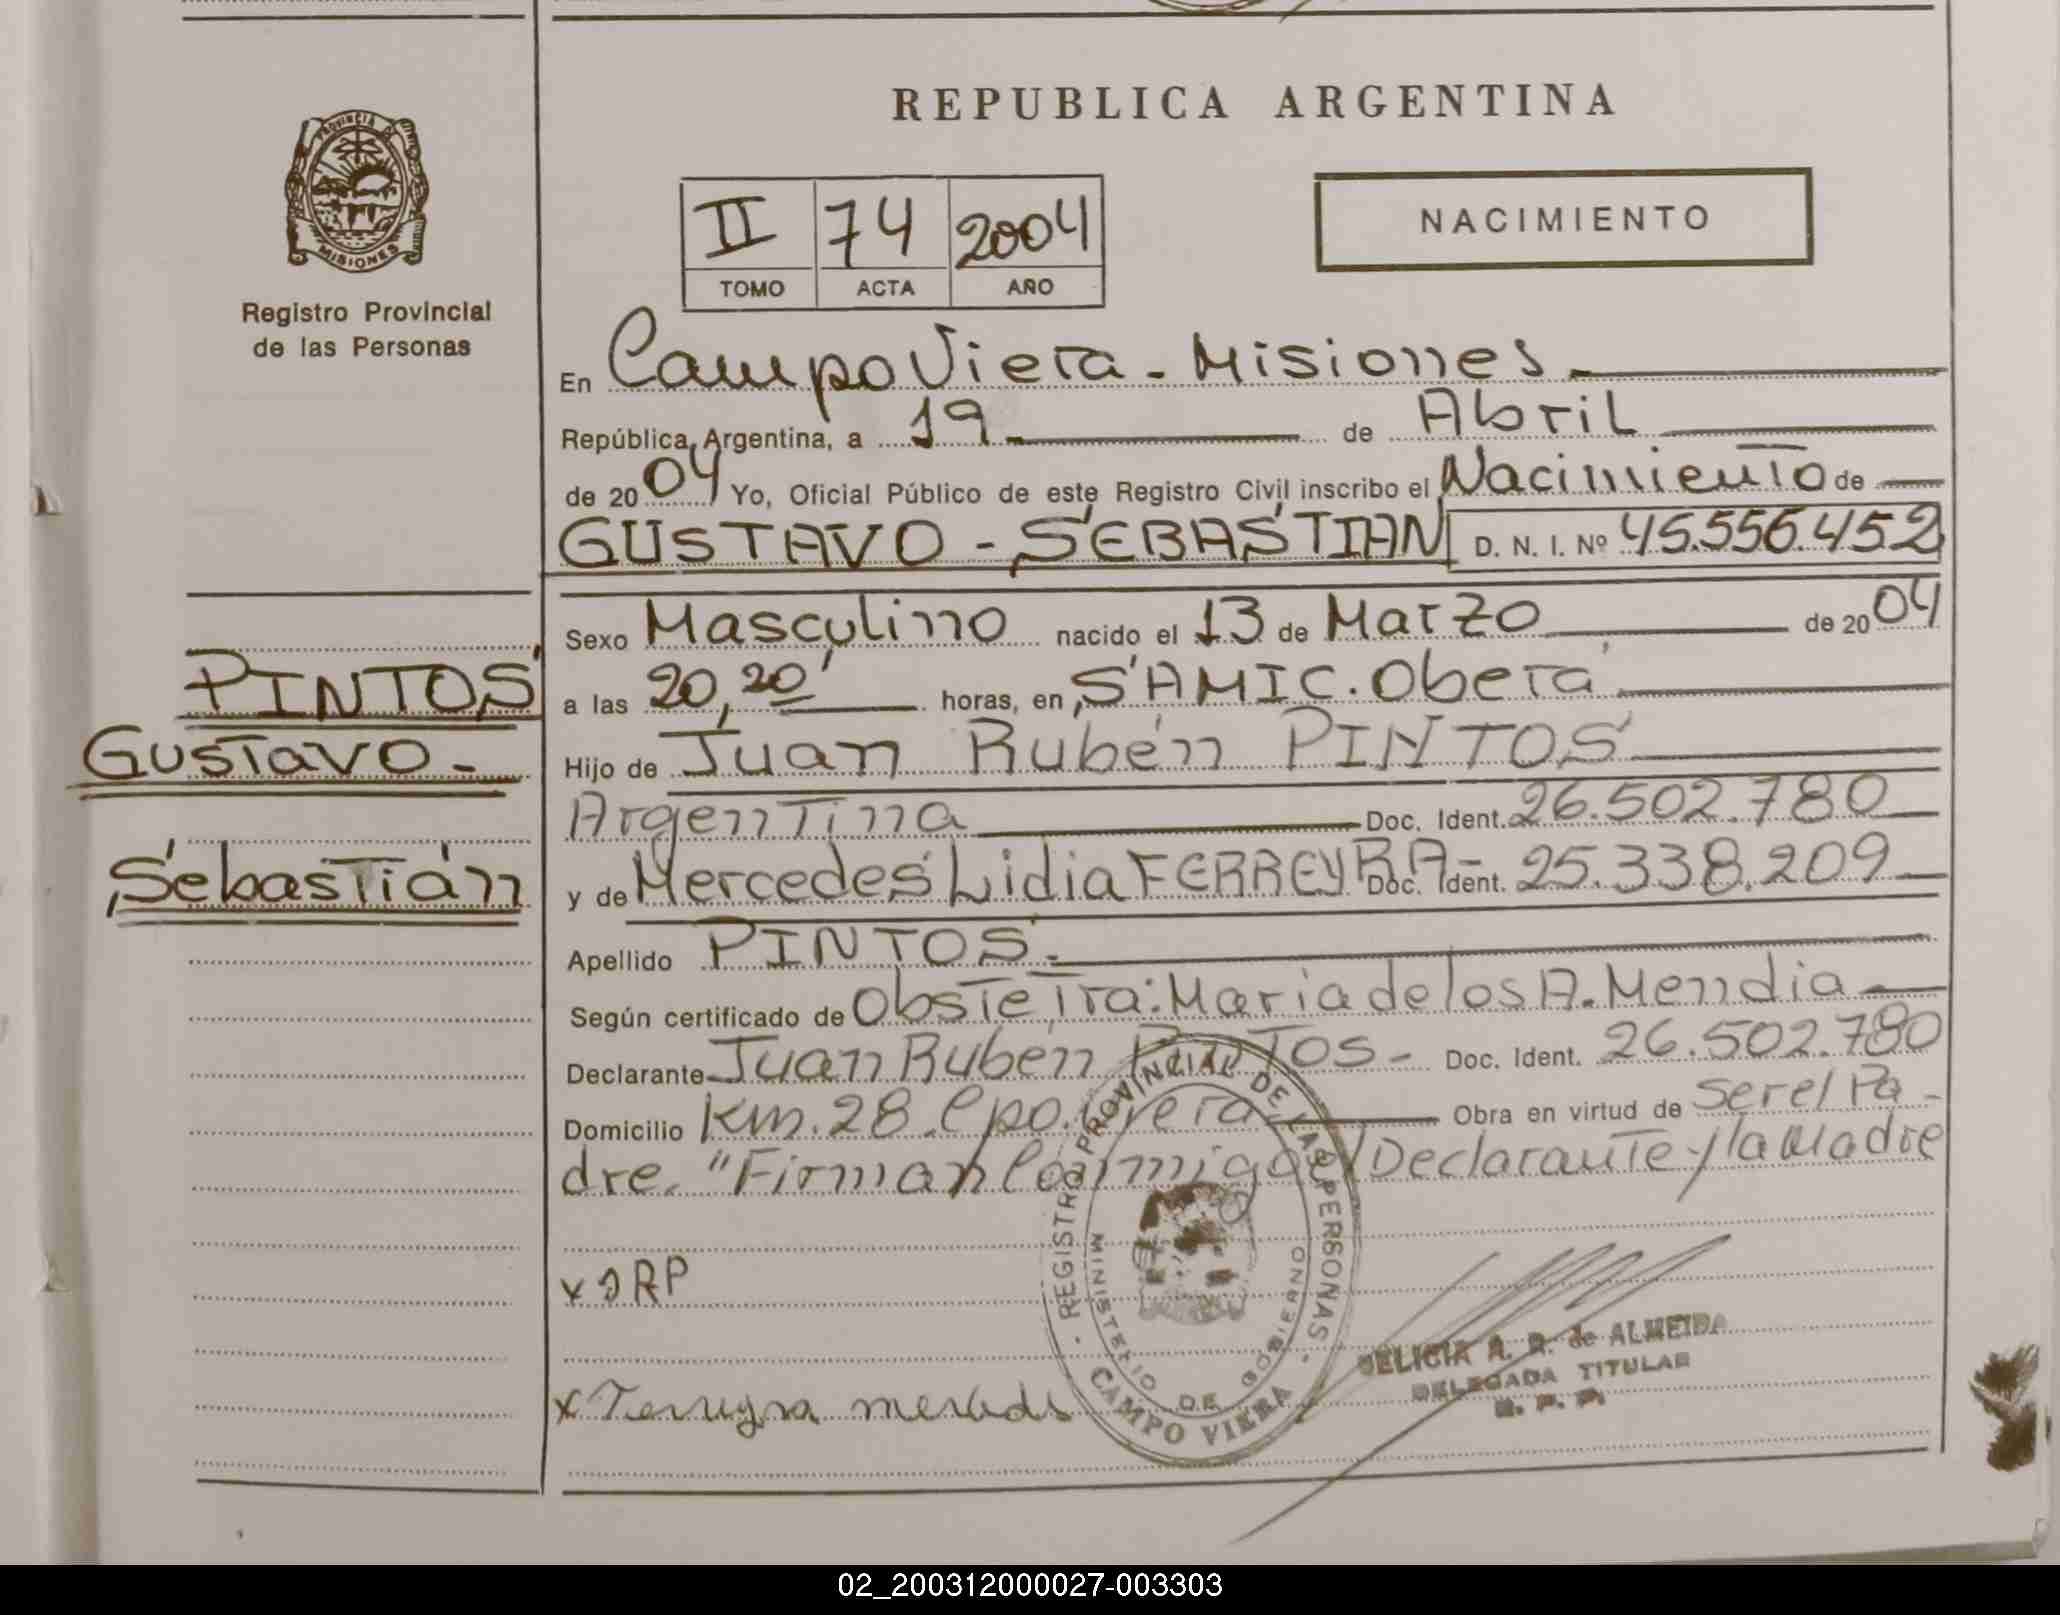 REPUBLICA ARGENTINA
PROVINCIA DE
MISIONES
Registro Provincial
de las Personas
II 74 2004
TOMO ACTA AÑO
NACIMIENTO
En Campo Viera - Misiones -
República Argentina, a 19 de Abril
de 2004 Yo, Oficial Público de este Registro Civil inscribo el Nacimiento de
GUSTAVO - SEBASTIAN D. N. I. Nº 45.556.452
Sexo Masculino nacido el 13 de Marzo de 2004
PINTOS
a las 20,20' horas, en SAMIC. Oberá
Gustavo -
Hijo de Juan Rubén PINTOS
Argentina Doc. Ident. 26.502.780
Sebastián
y de Mercedes Lidia FERREYRA - Doc. Ident. 25.338.209
Apellido PINTOS -
Según certificado de Obstetra: Maria de los A. Mendia
Declarante Juan Ruben PINTOS - Doc. Ident. 26.502.780
Domicilio Km. 28 Cpo. Viera Obra en virtud de ser el Pa-
dre. "Firman Conmigo/Declarante y la Madre
REGISTRO PROVINCIAL DE LAS PERSONAS
MINISTERIO DE GOBIERNO
CAMPO VIERA
x JRP
DELICIA A. R. de ALMEIDA
DELEGADA TITULAR
R. P. P.
x Ferreyra
02_200312000027-003303